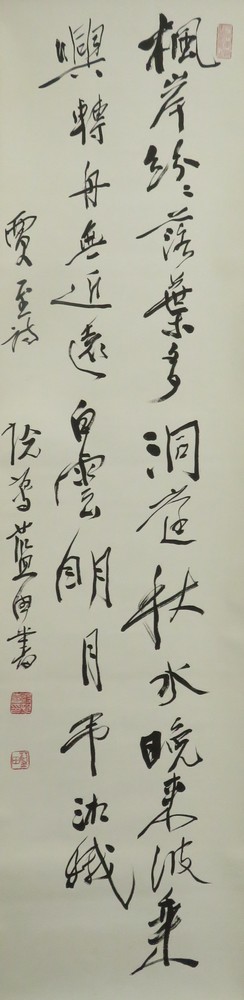 楓岸紛〻落葉多洞庭秋水晚來波乘
興轉舟無近遠白雲明月弔湘娥
賈至詩 藍 書